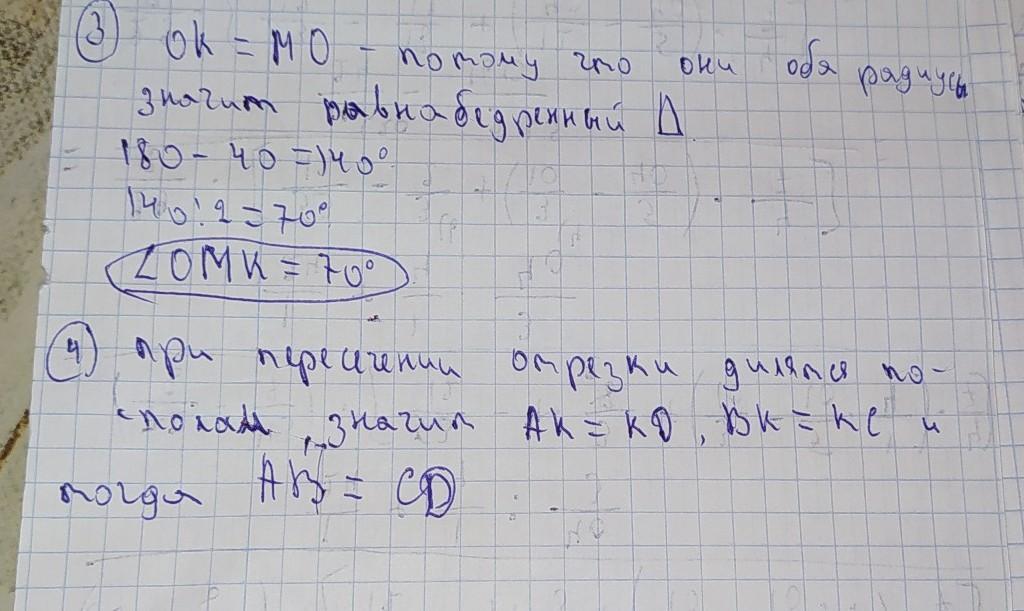 ③ OK = MO - потому что они оба радиусы
значит равнабедренный Δ
= 180 - 40 = 140°
140 : 2 = 70°
∠OMK = 70°
④ при пересечении отрезки дилятся по-
полам, значит AK = KD, BK = KC и
тогда AB = CD